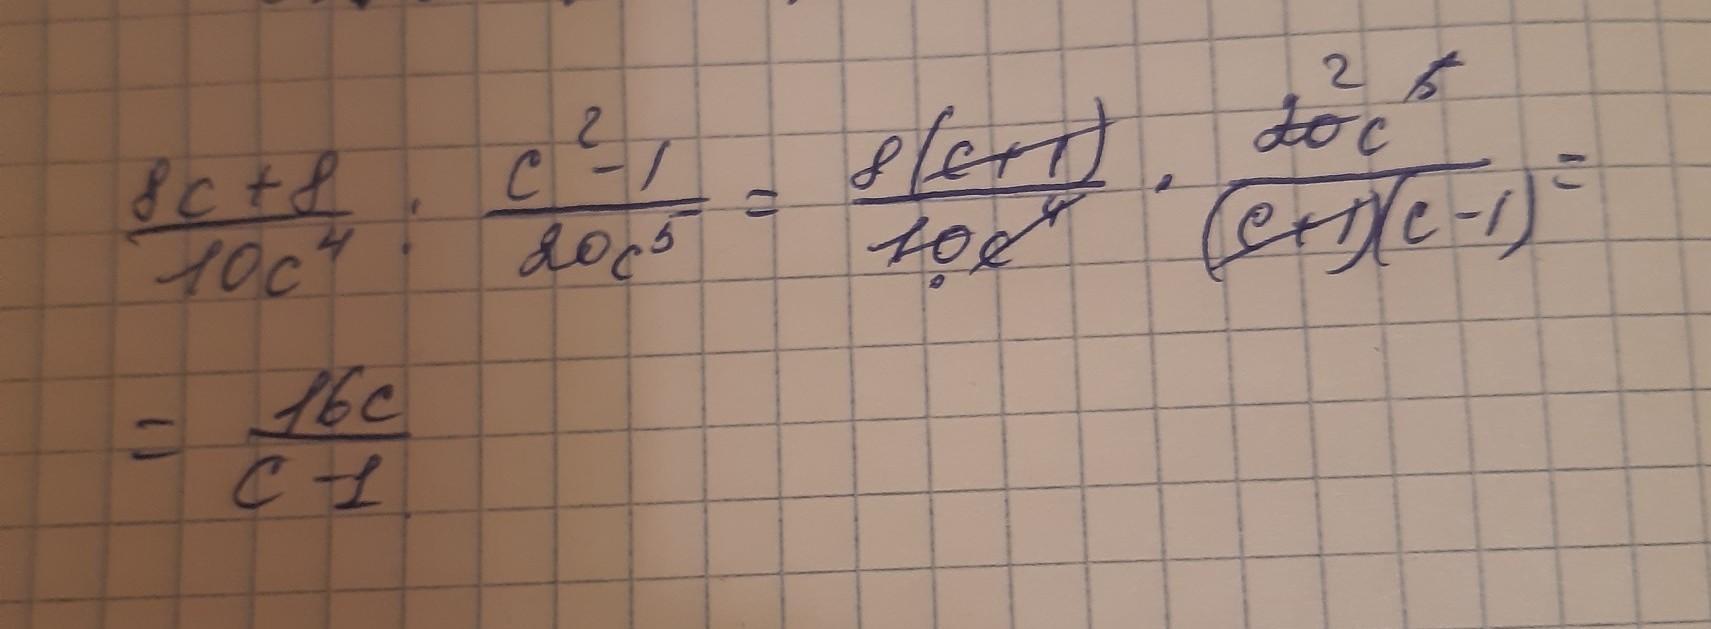 (8c+8)/(10c⁴) : (c²-1)/(20c⁵) = 8(c+1)/(10c⁴) · 2 20c⁵/((c+1)(c-1)) =
= 16c/(c-1)